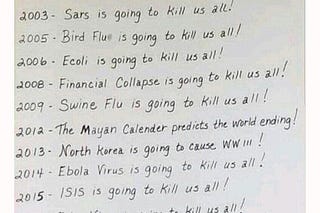 2003- Sars is going to kill us all!
2005- Bird Flu is going to kill us all!
2006- Ecoli is going to kill us all!
2008- Financial Collapse is going to kill us all!
2009- Swine Flu is going to kill us all!
2012-The Mayan Calender predicts the world ending!
2013- North Korea is going to cause WW III!
2014- Ebola Virus is going to kill us all!
2015- ISIS is going to kill us all!
is going to kill us all!